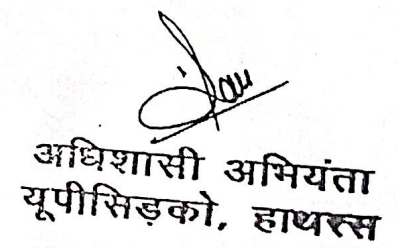 अधिशासी अभियंता
यूपीसिड़को, हाथरस